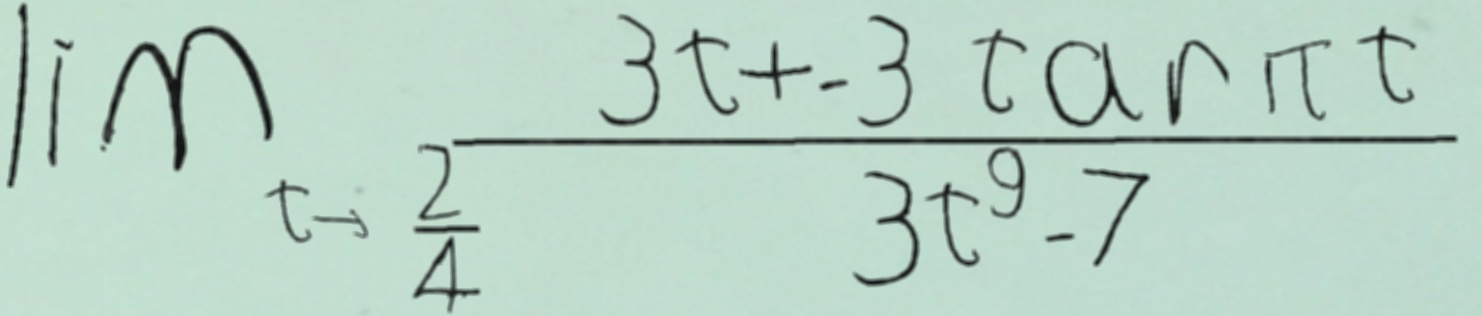 \lim_{t \to \frac{2}{4}} \frac{3t + -3 \tan \pi t}{3t^9 - 7}